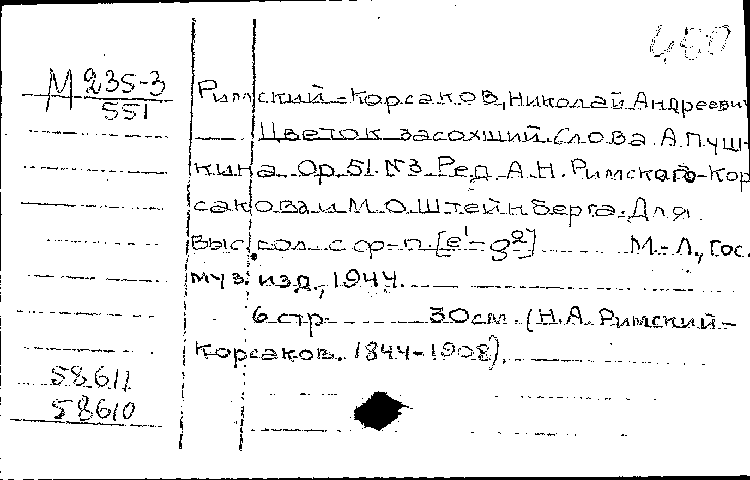 460
М 235-3
551
Римский-Корсаков, Николай Андреевич
Цветок засохший. Слова А.Пуш-
кина. Ор. 51. №3. Ред. А.Н. Римского-Кор
сакова и М.О. Штейнберга. Для
выс. гол. с ф-п. [e¹-g²] М.-Л., Гос.
муз. изд., 1944.
6 стр. 30см. (Н.А. Римский-
Корсаков. 1844-1908).
58611
58610